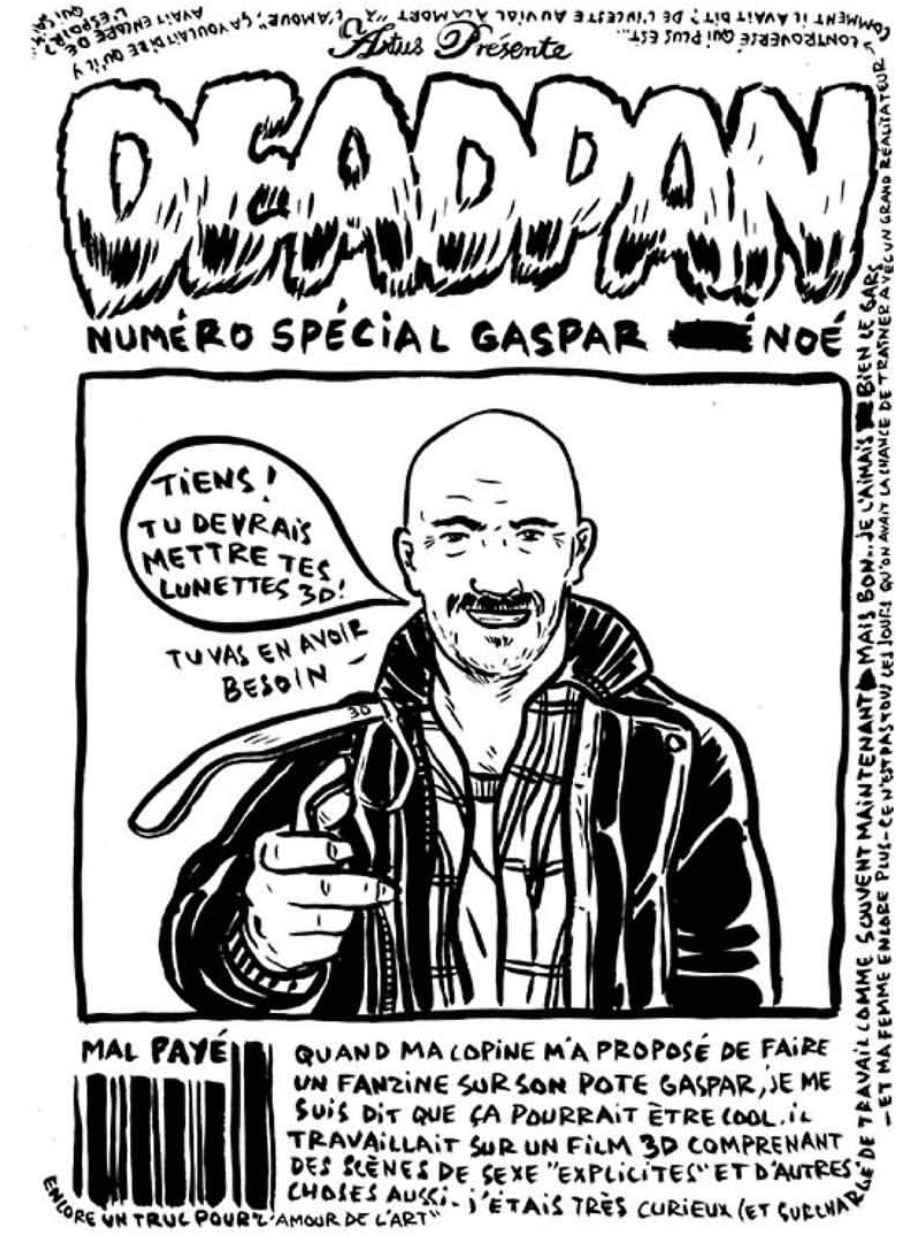 Artus Présente
DEADPAN
NUMÉRO SPÉCIAL GASPAR É NOÉ
TIENS !
TU DEVRAIS
METTRE TES
LUNETTES 3D!
TU VAS EN AVOIR
BESOIN –
3D
MAL PAYÉ
ENCORE UN TRUC POUR "L'AMOUR DE L'ART"
QUAND MA COPINE M'A PROPOSÉ DE FAIRE
UN FANZINE SUR SON POTE GASPAR, JE ME
SUIS DIT QUE ÇA POURRAIT ÊTRE COOL. IL
TRAVAILLAIT SUR UN FILM 3D COMPRENANT
DES SCÈNES DE SEXE "EXPLICITES" ET D'AUTRES
CHOSES AUSSI - J'ÉTAIS TRÈS CURIEUX (ET SURCHARGÉ DE TRAVAIL COMME SOUVENT MAINTENANT) MAIS BON.. JE L'AIMAIS BIEN LE GARS
– ET MA FEMME ENCORE PLUS – CE N'EST PAS TOUS LES JOURS QU'ON AVAIT LA CHANCE DE TRAINER AVEC UN GRAND RÉALISATEUR
CONTROVERSÉ QUI PLUS EST...
COMMENT IL AVAIT DIT? DE L'INCESTE AU VIOL A LA MORT L'AMOUR", ÇA VOULAIT DIRE QU'IL Y
AVAIT ENCORE DE
L'ESPOIR?
QUI SAIT..